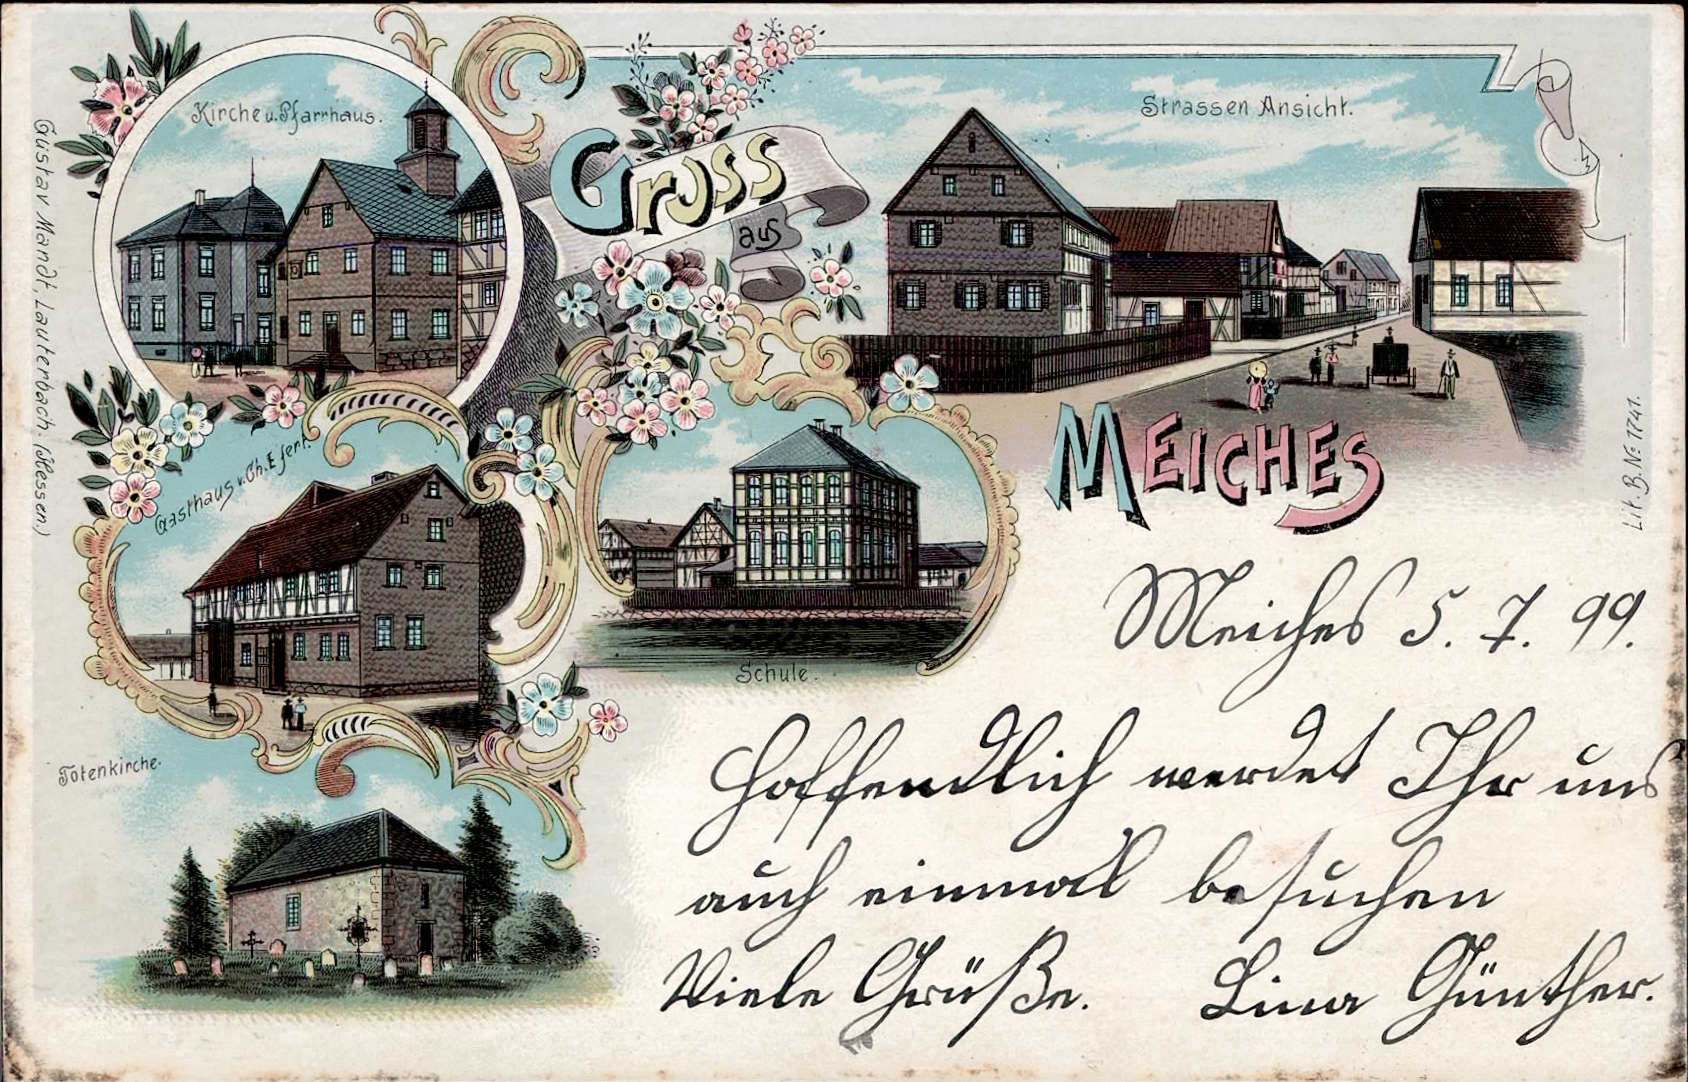 Kirche u. Pfarrhaus.
Gruss
aus
Strassen Ansicht.
MEICHES
Gasthaus v. Ch. Eifert.
Schule.
Totenkirche.
Gustav Mandt, Lauterbach. (Hessen.)
Lit. B. № 1741.
Meiches 5. 7. 99.
Hoffendlich werdet Ihr uns
auch einmal besuchen
Viele Grüße. Lina Günther.